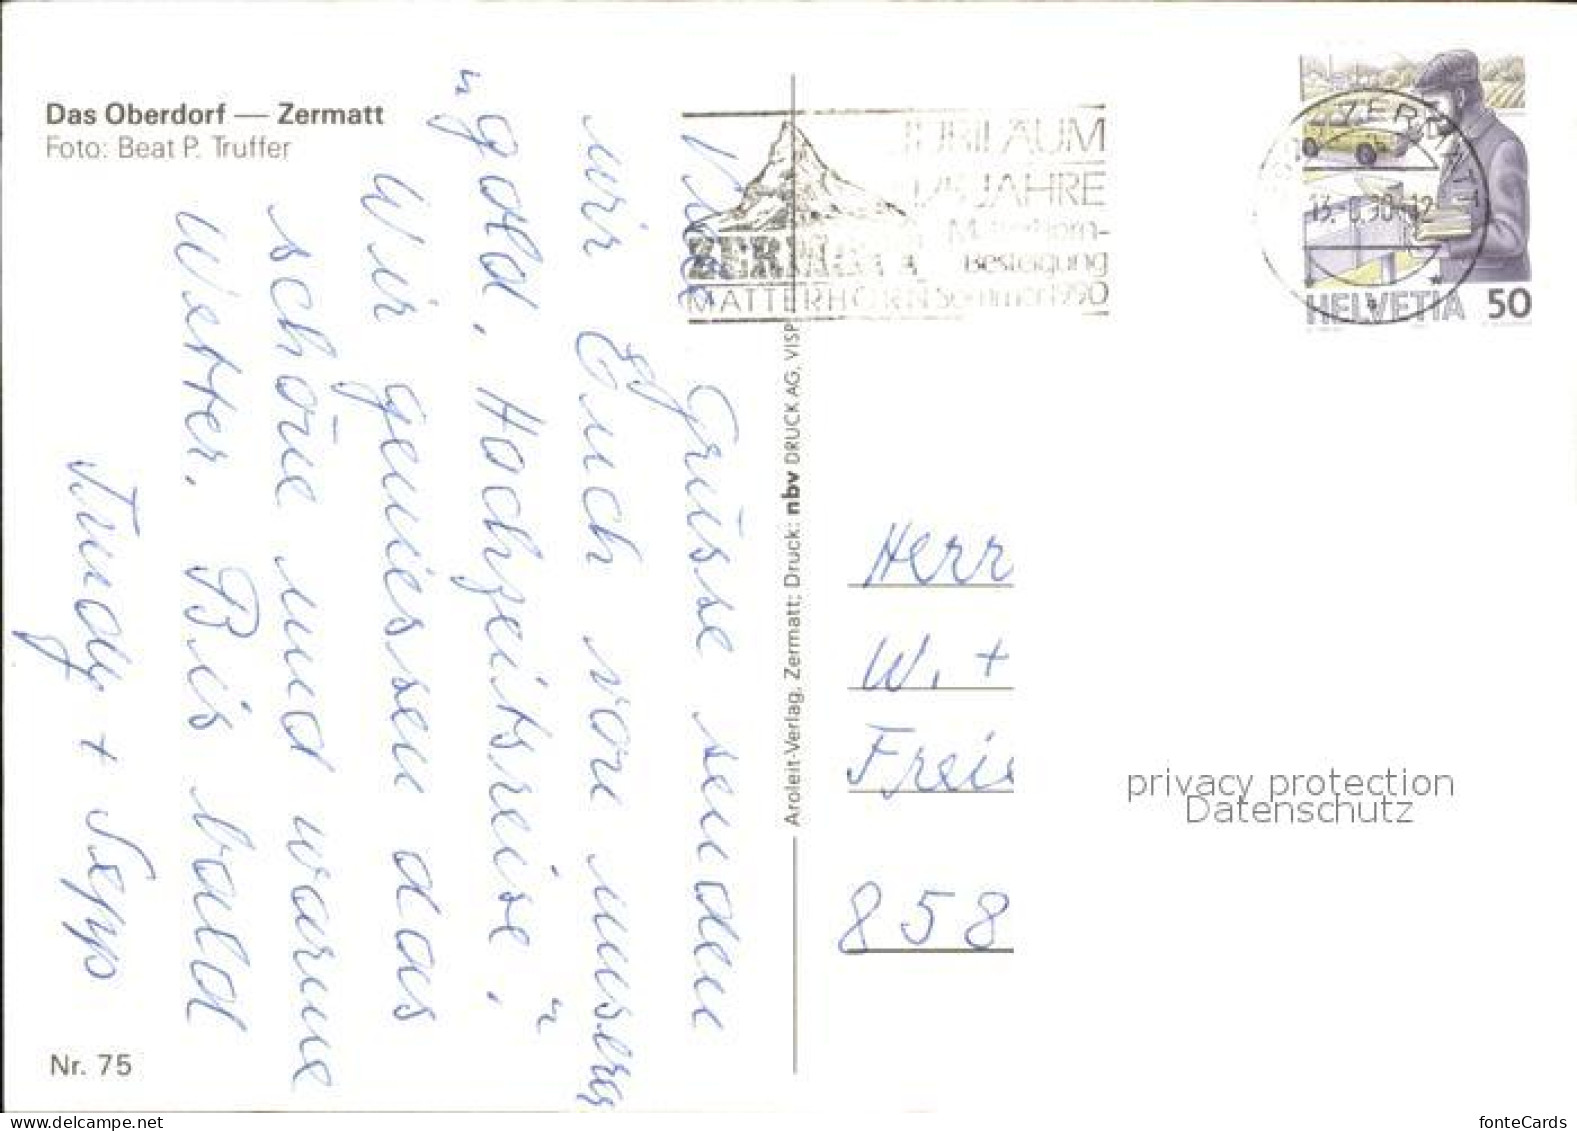 Das Oberdorf — Zermatt
Foto: Beat P. Truffer
Viele Grüsse senden
wir Euch von unserer
"gold. Hochzeitsreise".
Wir geniessen das
schöne und warme
Wetter. Bis bald
+ Sepp
Nr. 75
Aroleit-Verlag, Zermatt; Druck: nbv DRUCK AG, VISP
JUBILÄUM
125 JAHRE
Matterhorn-
Besteigung
ZERMATT
MATTERHORN Sommer 1990
ZERMATT
HELVETIA 50
Herr
W. +
Frei
858
privacy protection
Datenschutz
www.delcampe.net
fonteCards